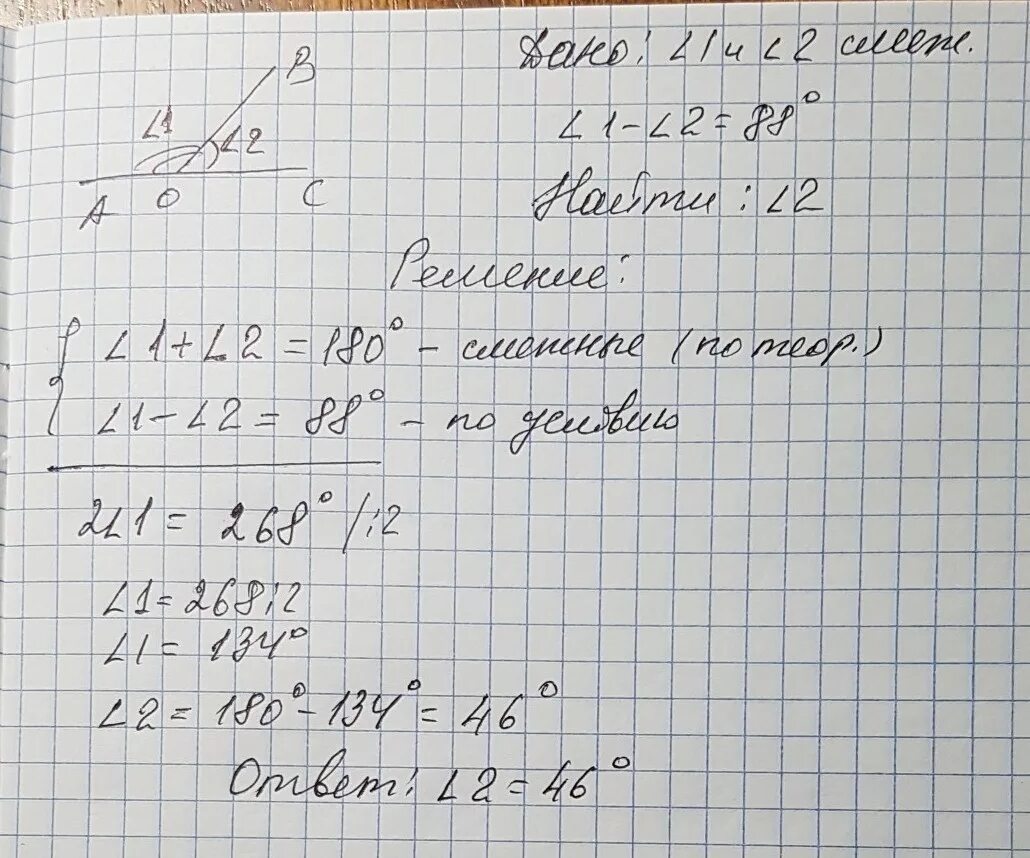 B
Дано: ∠1 и ∠2 смеж.
∠1
∠2
∠1-∠2=88°
A
O
C
Найти: ∠2
Решение:
{ ∠1+∠2=180° - смежные (по теор.)
∠1-∠2=88° - по условию
2∠1= 268° /:2
∠1=268:2
∠1= 134°
∠2= 180°-134°=46°
Ответ: ∠2=46°